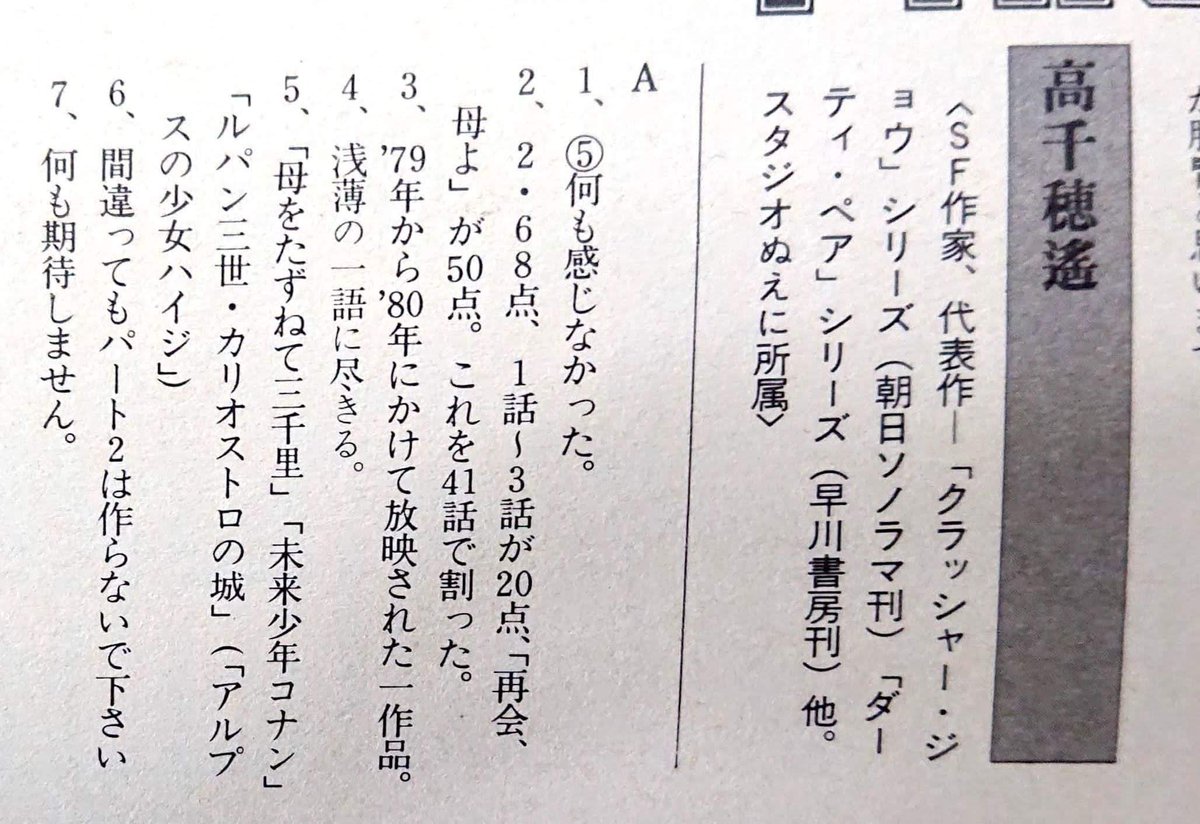 高千穂遙
〈SF作家、代表作―「クラッシャー・ジ
ョウ」シリーズ（朝日ソノラマ刊）「ダー
ティ・ペア」シリーズ（早川書房刊）他。
スタジオぬえに所属〉
A
1、⑤何も感じなかった。
2、2・68点、1話～3話が20点、「再会、
母よ」が50点。これを41話で割った。
3、'79年から'80年にかけて放映された一作品。
4、浅薄の一語に尽きる。
5、「母をたずねて三千里」「未来少年コナン」
「ルパン三世・カリオストロの城」（「アルプ
スの少女ハイジ」）
6、間違ってもパート2は作らないで下さい
7、何も期待しません。